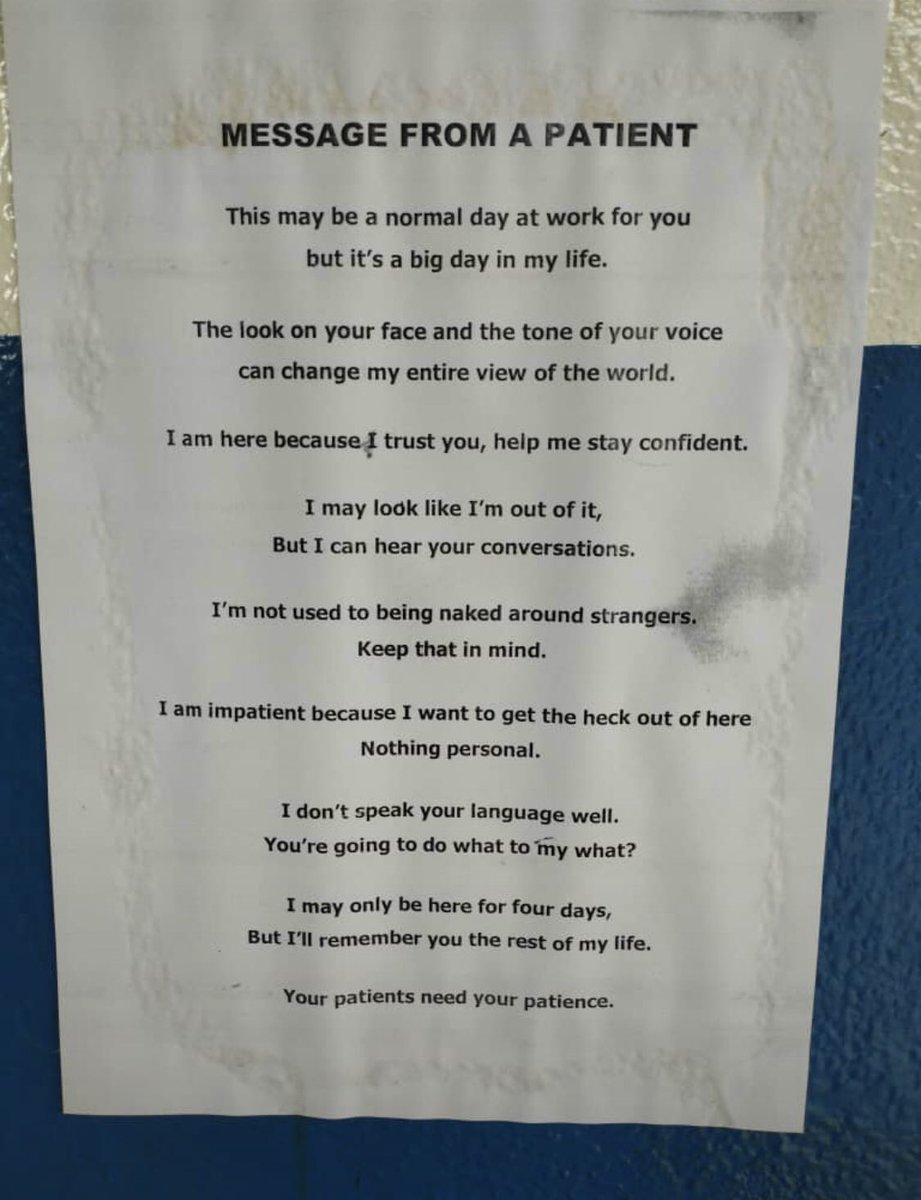 MESSAGE FROM A PATIENT
This may be a normal day at work for you
but it's a big day in my life.
The look on your face and the tone of your voice
can change my entire view of the world.
I am here because I trust you, help me stay confident.
I may look like I'm out of it,
But I can hear your conversations.
I'm not used to being naked around strangers.
Keep that in mind.
I am impatient because I want to get the heck out of here
Nothing personal.
I don't speak your language well.
You're going to do what to my what?
I may only be here for four days,
But I'll remember you the rest of my life.
Your patients need your patience.